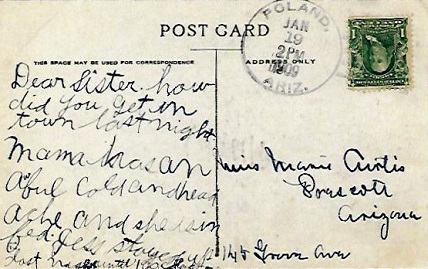 POST CARD
THIS SPACE MAY BE USED FOR CORRESPONDENCE
ADDRESS ONLY
POLAND,
JAN
19
2PM
1909
ARIZ.
1
1
Dear Sister. how
did you get in
town last night
Mama has an
Aful cold and head
ache and she is in
bed. Jess stayed up
Last
Miss Marie Curtis
Prescott
Arizona
145 Grove Ave